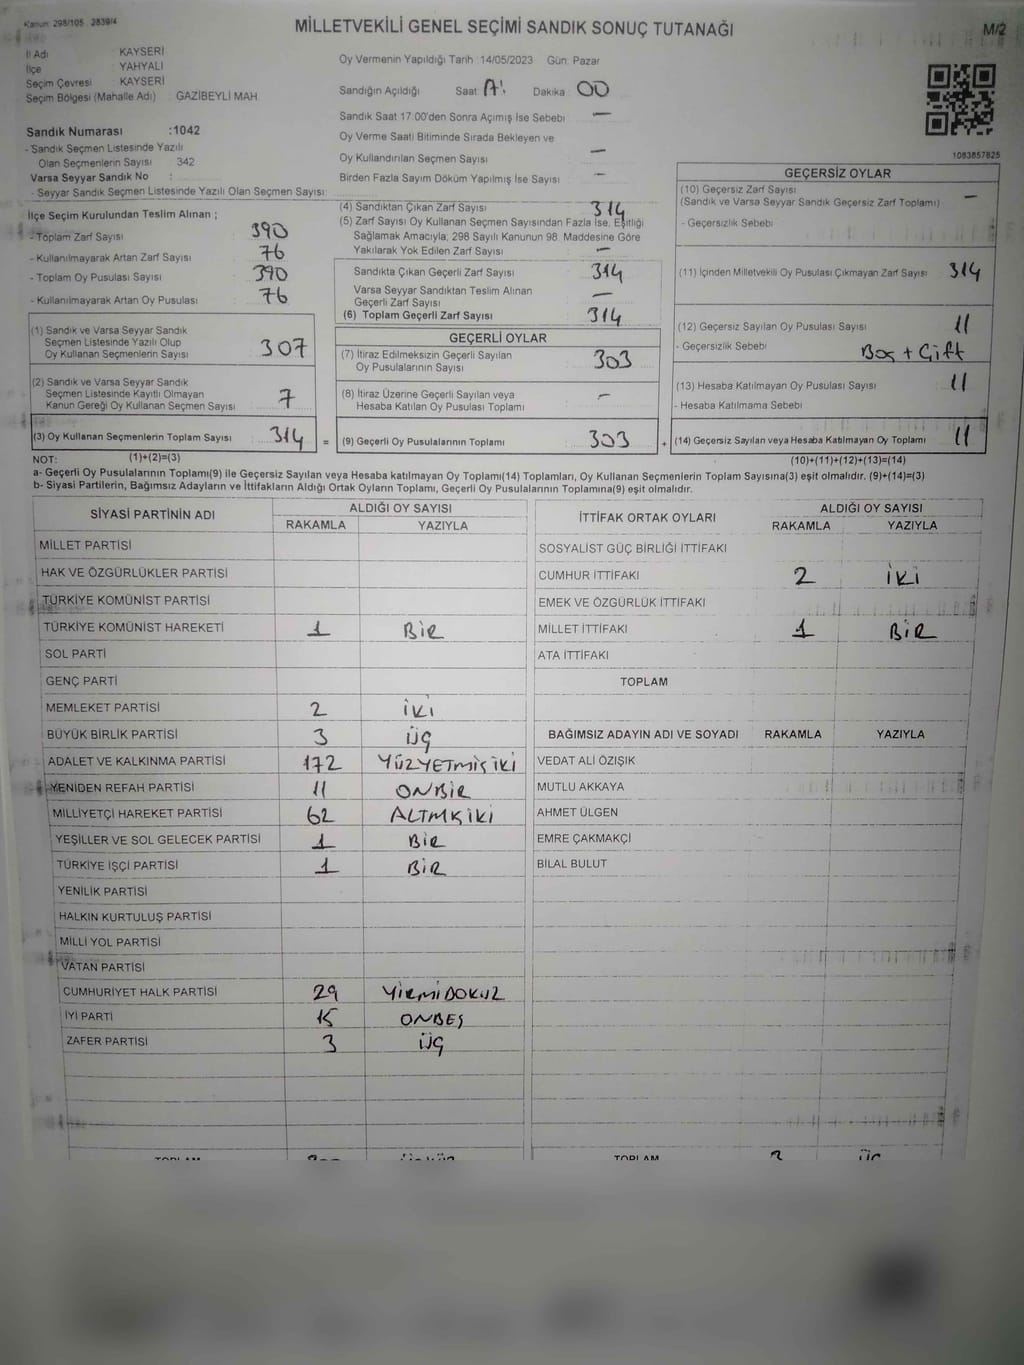 Kanun: 298/105 2839/4
MİLLETVEKİLİ GENEL SEÇİMİ SANDIK SONUÇ TUTANAĞI
M/2
İl Adı KAYSERİ
İlçe YAHYALI
Seçim Çevresi KAYSERİ
Seçim Bölgesi (Mahalle Adı) : GAZİBEYLİ MAH.
Sandık Numarası :1042
- Sandık Seçmen Listesinde Yazılı
Olan Seçmenlerin Sayısı : 342
Varsa Seyyar Sandık No :
- Seyyar Sandık Seçmen Listesinde Yazılı Olan Seçmen Sayısı:
Oy Vermenin Yapıldığı Tarih :14/05/2023 Gün: Pazar
Sandığın Açıldığı Saat: Dakika: 00
Sandık Saat 17.00'den Sonra Açımış İse Sebebi —
Oy Verme Saati Bitiminde Sırada Bekleyen ve
Oy Kullandırılan Seçmen Sayısı —
Birden Fazla Sayım Döküm Yapılmış İse Sayısı —
1083857825
İlçe Seçim Kurulundan Teslim Alınan ;
- Toplam Zarf Sayısı : 390
- Kullanılmayarak Artan Zarf Sayısı : 76
- Toplam Oy Pusulası Sayısı : 390
- Kullanılmayarak Artan Oy Pusulası : 76
(1) Sandık ve Varsa Seyyar Sandık
Seçmen Listesinde Yazılı Olup
Oy Kullanan Seçmenlerin Sayısı : 307
(2) Sandık ve Varsa Seyyar Sandık
Seçmen Listesinde Kayıtlı Olmayan
Kanun Gereği Oy Kullanan Seçmen Sayısı : 7
(3) Oy Kullanan Seçmenlerin Toplam Sayısı : 314 =
(4) Sandıktan Çıkan Zarf Sayısı : 314
(5) Zarf Sayısı Oy Kullanan Seçmen Sayısından Fazla İse, Eşitliği
Sağlamak Amacıyla; 298 Sayılı Kanunun 98. Maddesine Göre
Yakılarak Yok Edilen Zarf Sayısı : —
Sandıkta Çıkan Geçerli Zarf Sayısı : 314
Varsa Seyyar Sandıktan Teslim Alınan
Geçerli Zarf Sayısı : —
(6) Toplam Geçerli Zarf Sayısı : 314
GEÇERLİ OYLAR
(7) İtiraz Edilmeksizin Geçerli Sayılan
Oy Pusulalarının Sayısı : 303
(8) İtiraz Üzerine Geçerli Sayılan veya
Hesaba Katılan Oy Pusulası Toplamı : —
(9) Geçerli Oy Pusulalarının Toplamı : 303 +
GEÇERSİZ OYLAR
(10) Geçersiz Zarf Sayısı —
(Sandık ve Varsa Seyyar Sandık Geçersiz Zarf Toplamı)
- Geçersizlik Sebebi
(11) İçinden Milletvekili Oy Pusulası Çıkmayan Zarf Sayısı 314
(12) Geçersiz Sayılan Oy Pusulası Sayısı 11
- Geçersizlik Sebebi : Boş + Çift
(13) Hesaba Katılmayan Oy Pusulası Sayısı : 11
- Hesaba Katılmama Sebebi :
(14) Geçersiz Sayılan veya Hesaba Katılmayan Oy Toplamı : 11
NOT: (1)+(2)=(3)
(10)+(11)+(12)+(13)=(14)
a- Geçerli Oy Pusulalarının Toplamı(9) ile Geçersiz Sayılan veya Hesaba katılmayan Oy Toplamı(14) Toplamları, Oy Kullanan Seçmenlerin Toplam Sayısına(3) eşit olmalıdır. (9)+(14)=(3)
b- Siyasi Partilerin, Bağımsız Adayların ve İttifakların Aldığı Ortak Oyların Toplamı, Geçerli Oy Pusulalarının Toplamına(9) eşit olmalıdır.
SİYASİ PARTİNİN ADI
ALDIĞI OY SAYISI
RAKAMLA YAZIYLA
MİLLET PARTİSİ
HAK VE ÖZGÜRLÜKLER PARTİSİ
TÜRKİYE KOMÜNİST PARTİSİ
TÜRKİYE KOMÜNİST HAREKETİ 1 BİR
SOL PARTİ
GENÇ PARTİ
MEMLEKET PARTİSİ 2 İKİ
BÜYÜK BİRLİK PARTİSİ 3 ÜÇ
ADALET VE KALKINMA PARTİSİ 172 YÜZYETMİŞİKİ
YENİDEN REFAH PARTİSİ 11 ONBİR
MİLLİYETÇİ HAREKET PARTİSİ 62 ALTMIŞİKİ
YEŞİLLER VE SOL GELECEK PARTİSİ 1 BİR
TÜRKİYE İŞÇİ PARTİSİ 1 BİR
YENİLİK PARTİSİ
HALKIN KURTULUŞ PARTİSİ
MİLLİ YOL PARTİSİ
VATAN PARTİSİ
CUMHURİYET HALK PARTİSİ 29 YİRMİDOKUZ
İYİ PARTİ 15 ONBEŞ
ZAFER PARTİSİ 3 ÜÇ
TOPLAM
İTTİFAK ORTAK OYLARI
ALDIĞI OY SAYISI
RAKAMLA YAZIYLA
SOSYALİST GÜÇ BİRLİĞİ İTTİFAKI
CUMHUR İTTİFAKI 2 İKİ
EMEK VE ÖZGÜRLÜK İTTİFAKI
MİLLET İTTİFAKI 1 BİR
ATA İTTİFAKI
TOPLAM
BAĞIMSIZ ADAYIN ADI VE SOYADI RAKAMLA YAZIYLA
VEDAT ALİ ÖZIŞIK
MUTLU AKKAYA
AHMET ÜLGEN
EMRE ÇAKMAKÇİ
BİLAL BULUT
TOPLAM 3 ÜÇ